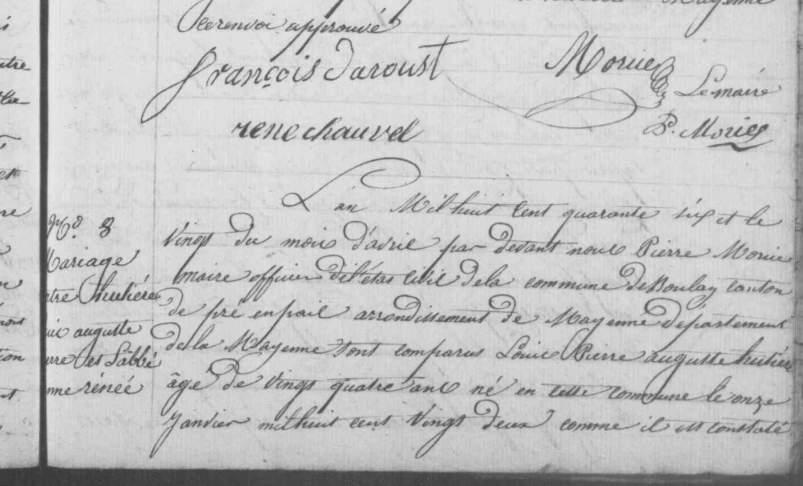 Ce renvoi approuvé
françois daroust
Morice
Le maire
rene chauvel
P. Morice
N.º 8
Mariage
entre hutière
auguste
et Labbé
rénée
L'an Mil huit Cent quarante six et le
Vingt du mois d'avril par devant nous Pierre Morice
maire officier de l'état Civil de la commune de Boulay canton
de pré en pail arrondissement de Mayenne département
de la Mayenne sont comparus Louis Pierre auguste hutière
âgé de vingt quatre ans né en cette commune le onze
Janvier mil huit cent vingt deux comme il est constaté